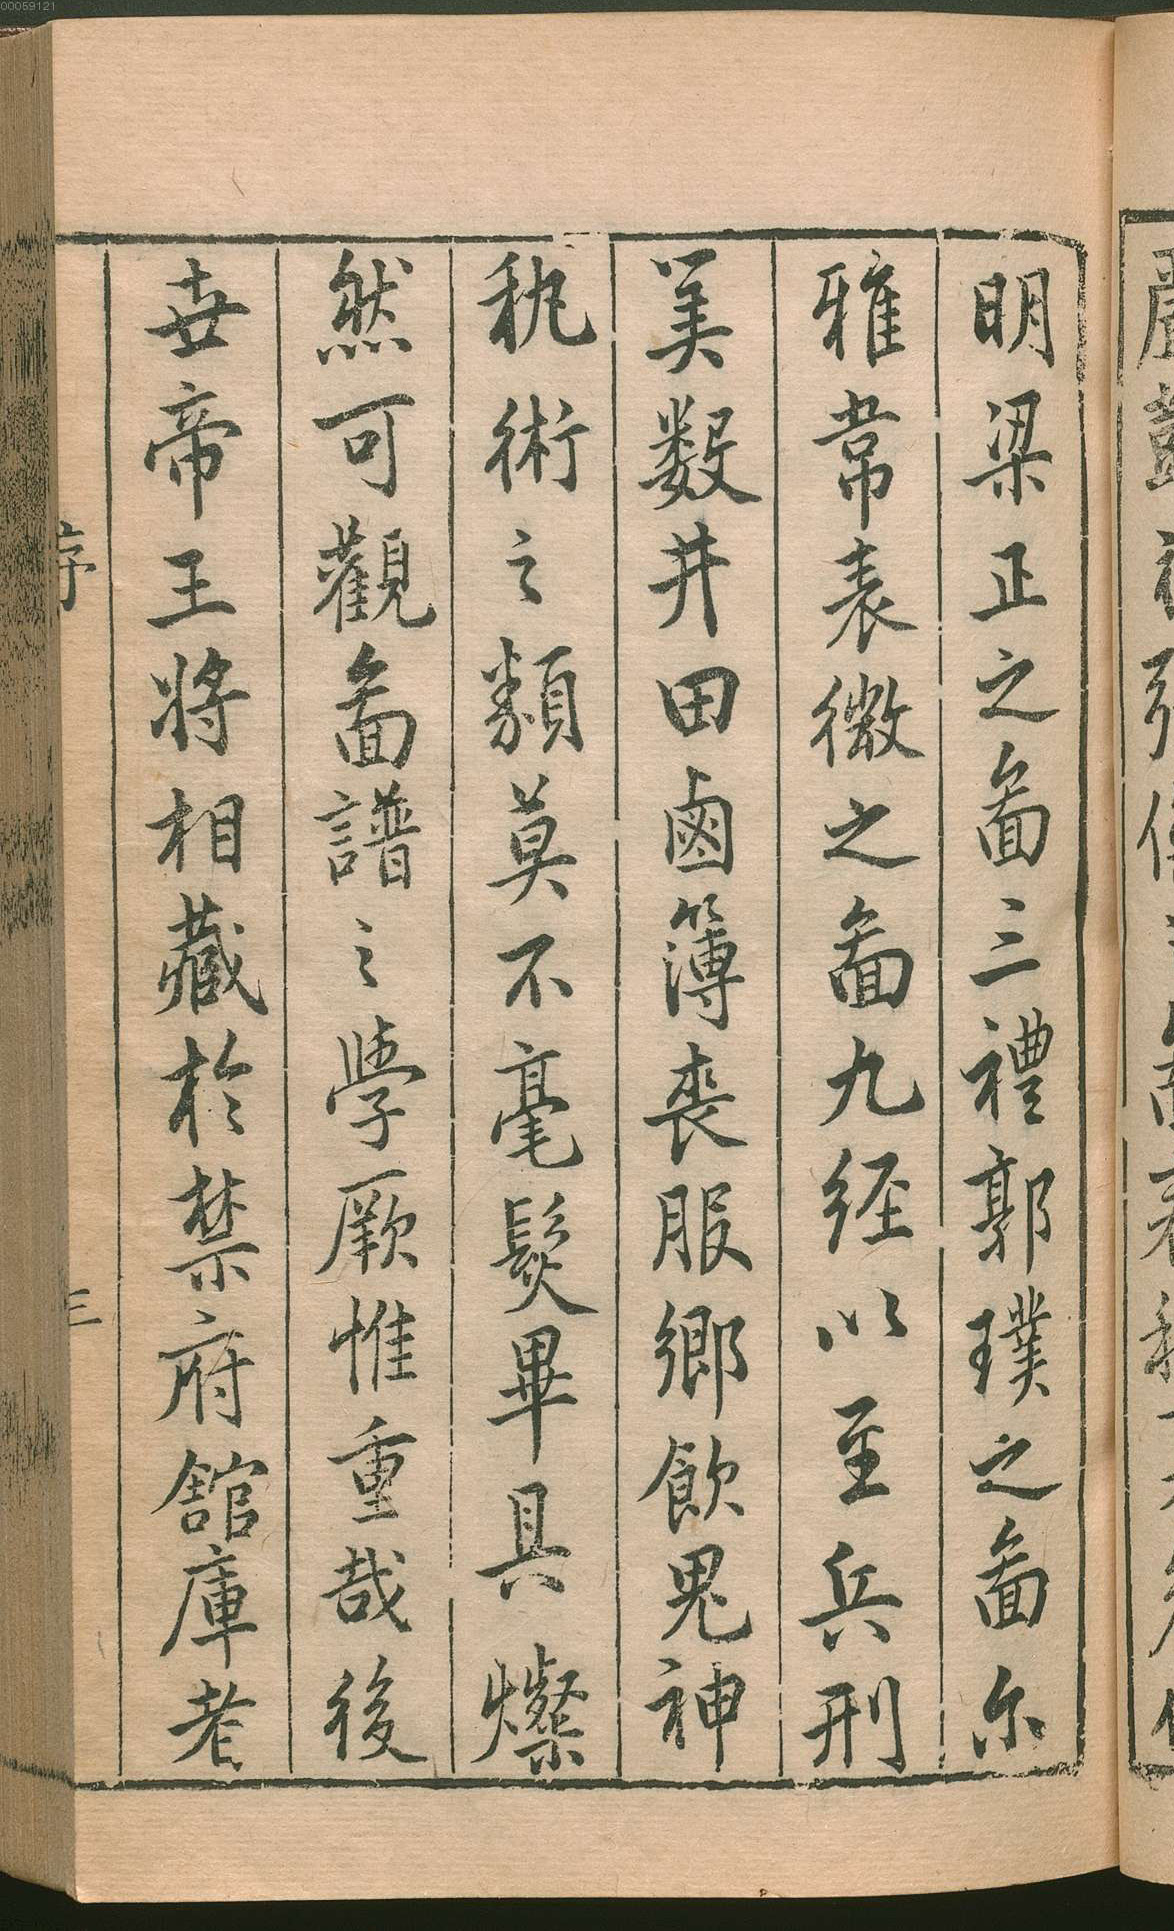 00059121
明梁正之啚三禮郭璞之啚尔
雅常表微之啚九經以至兵刑
美数井田鹵簿喪服鄉飲鬼神
執術之類莫不毫髮畢具燦
然可觀啚譜之學厥惟重哉後
世帝王將相藏於禁府館庫者
序
三